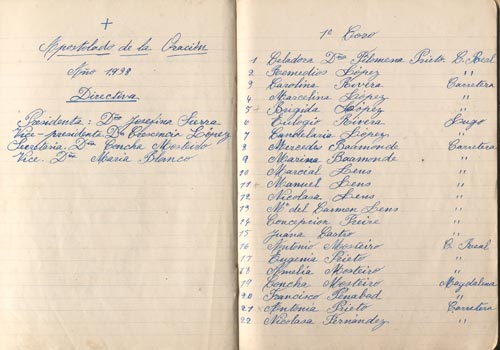 +
Apostolado de la Oración
Año 1938
Directiva.
Presidenta: Dña Josefina Sierra
Vice-presidente Dña Cresencia López
Secretaria. Dña Concha Mosteiro
Vice. Dña María Blanco
1º Coro
1 Celadora Dña Filomena Prieto. C. Real
2 Remedios López "
3 Carolina Rivera Carretera
4 Marcelina López "
5 Brígida López "
6 Eulogio Rivera Lugo
7 Candelaria López "
8 Mercedes Baamonde Carretera
9 Marina Baamonde "
10 Marcial Lens "
11 Manuel Lens "
12 Nicolasa Lens "
13 Mª del Carmen Lens "
14 Concepcion Freire "
15 Juana Castro "
16 Antonio Mosteiro C. Real
17 Eugenia Prieto "
18 Amelia Mosteiro "
19 Concha Mosteiro Magdalena
20 Francisco Penabad "
21 Antonia Prieto Carretera
22 Nicolasa Fernández "